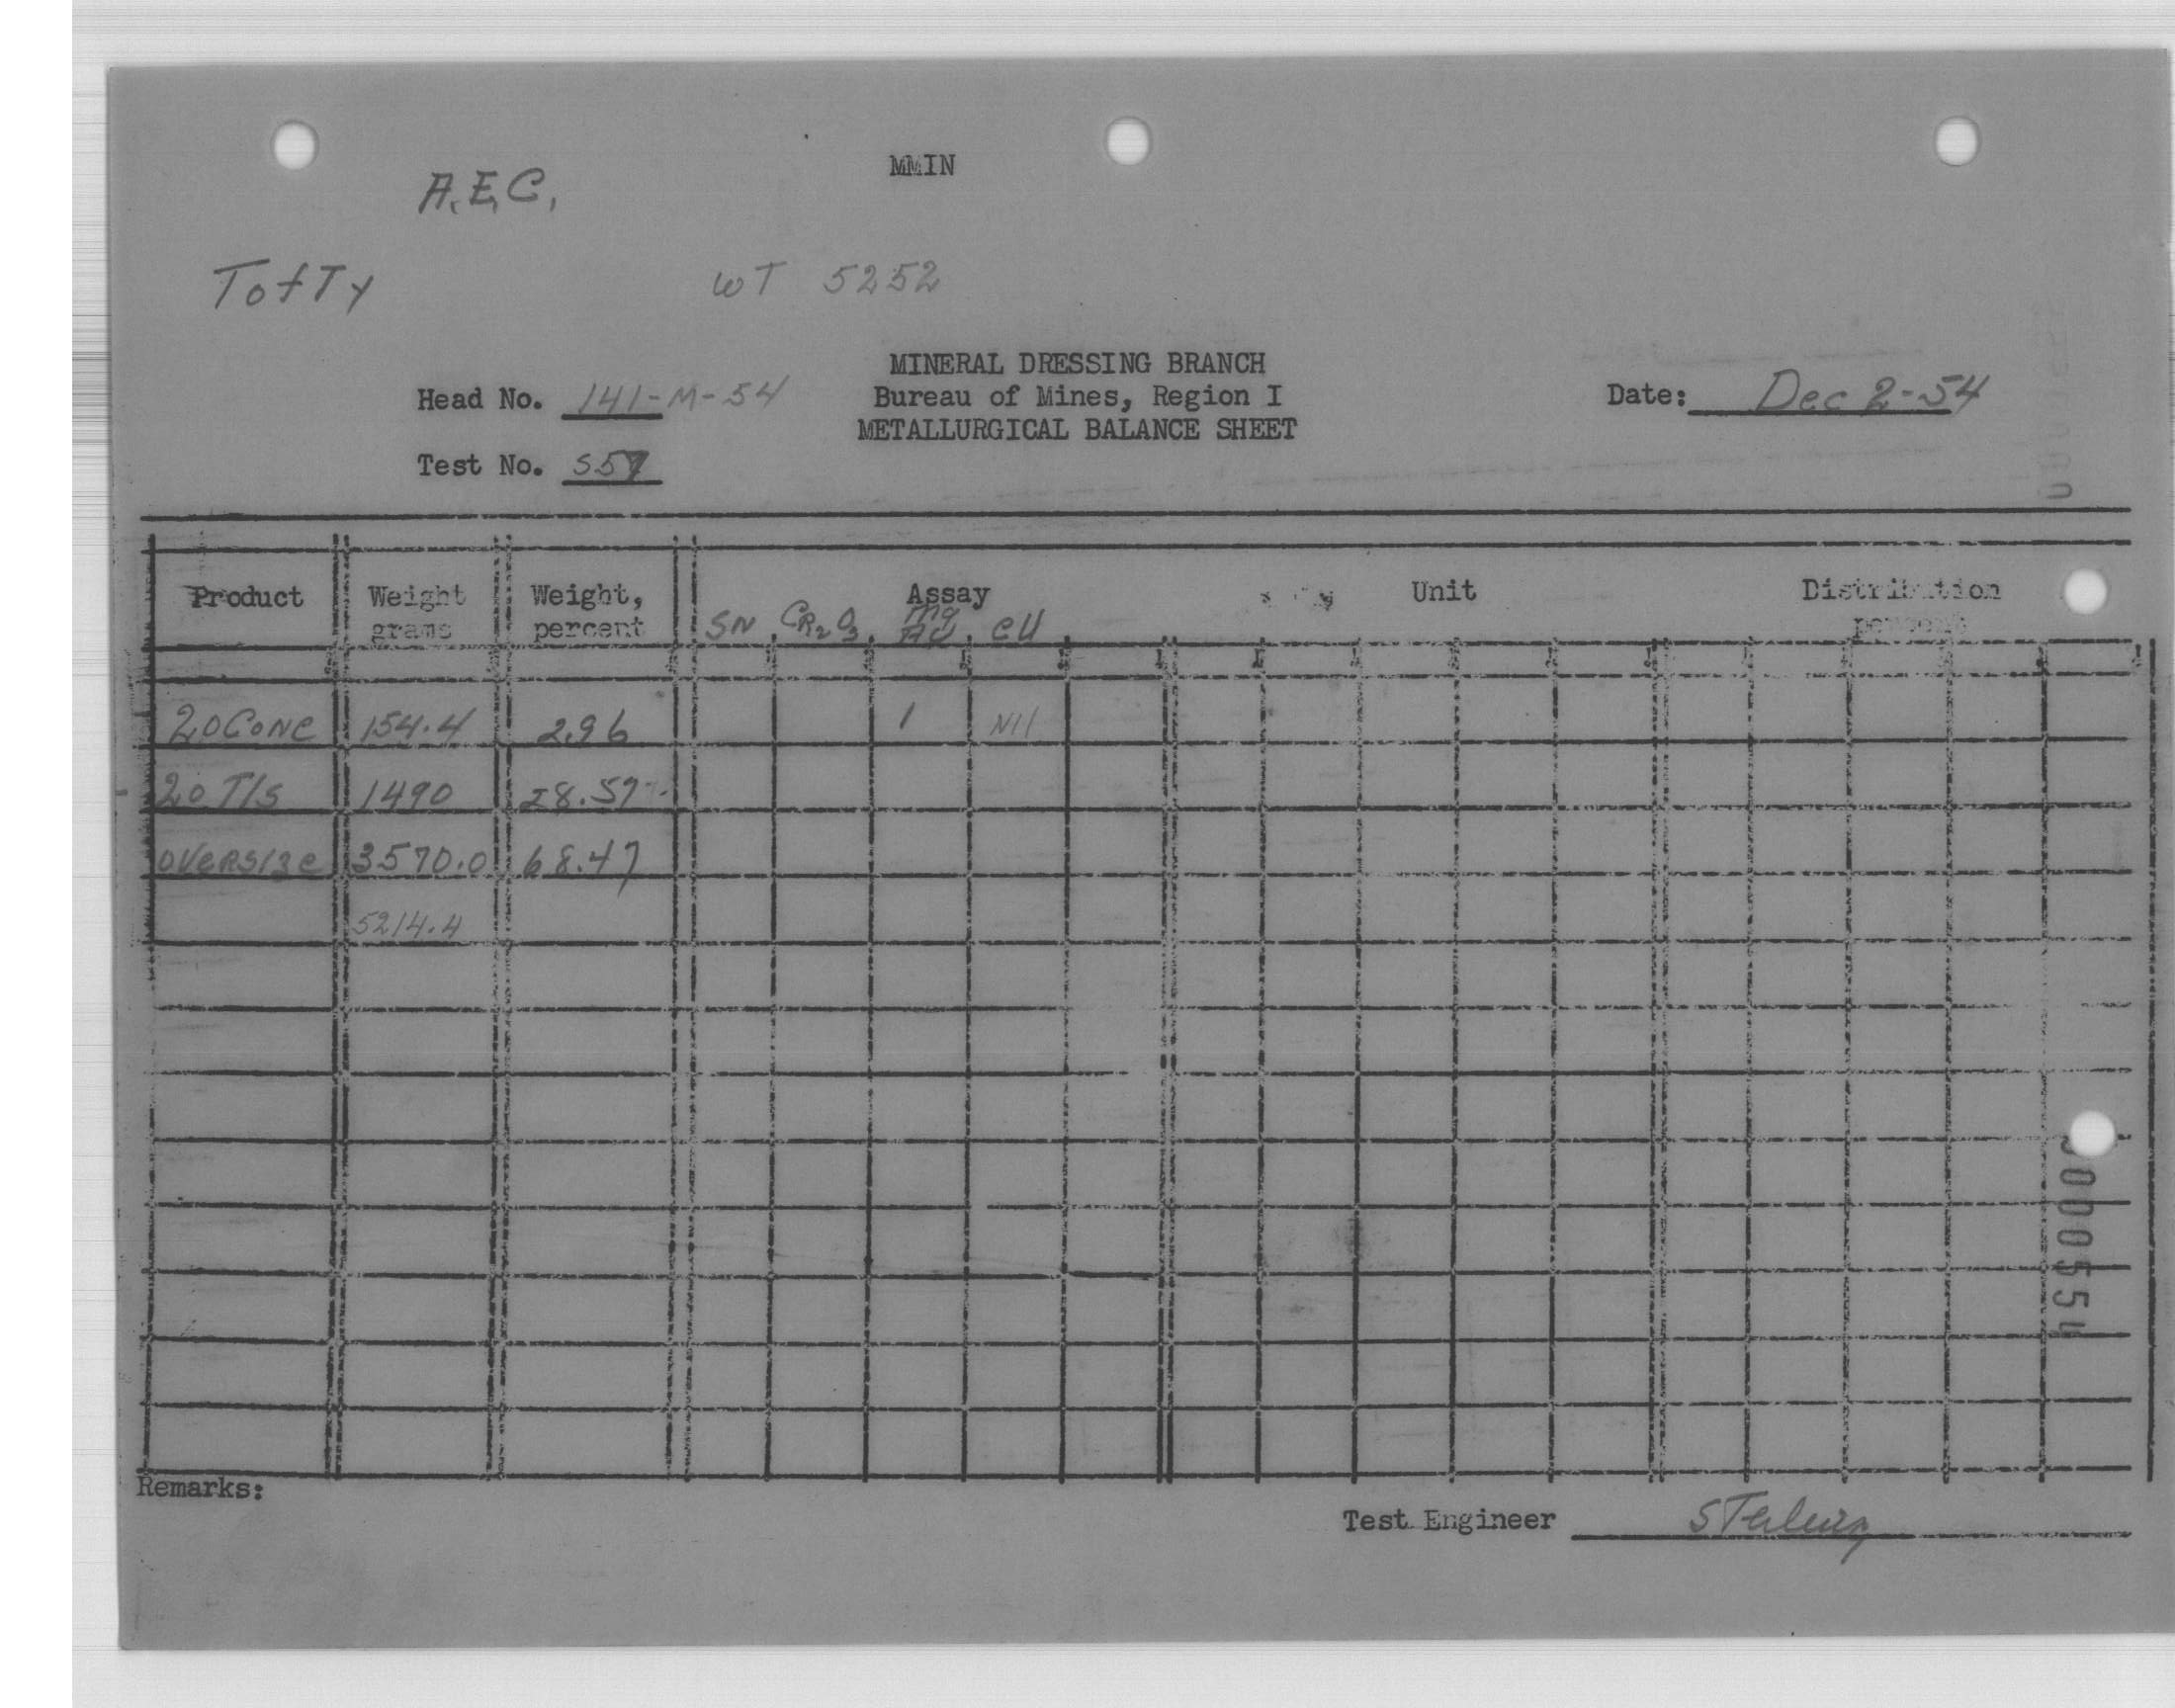 MMIN
A.E.C.
Tofty WT 5252
MINERAL DRESSING BRANCH
Head No. 141-M-54 Bureau of Mines, Region I Date: Dec 2-54
METALLURGICAL BALANCE SHEET
Test No. S57
Product Weight grams Weight, percent Assay Unit Distribution percent
SN CR2O3 Mg AU eU
20 CONC 154.4 2.96 1 Nil
20 T/s 1490 28.57
OVERSIZE 3570.0 68.47
5214.4
Remarks:
Test Engineer